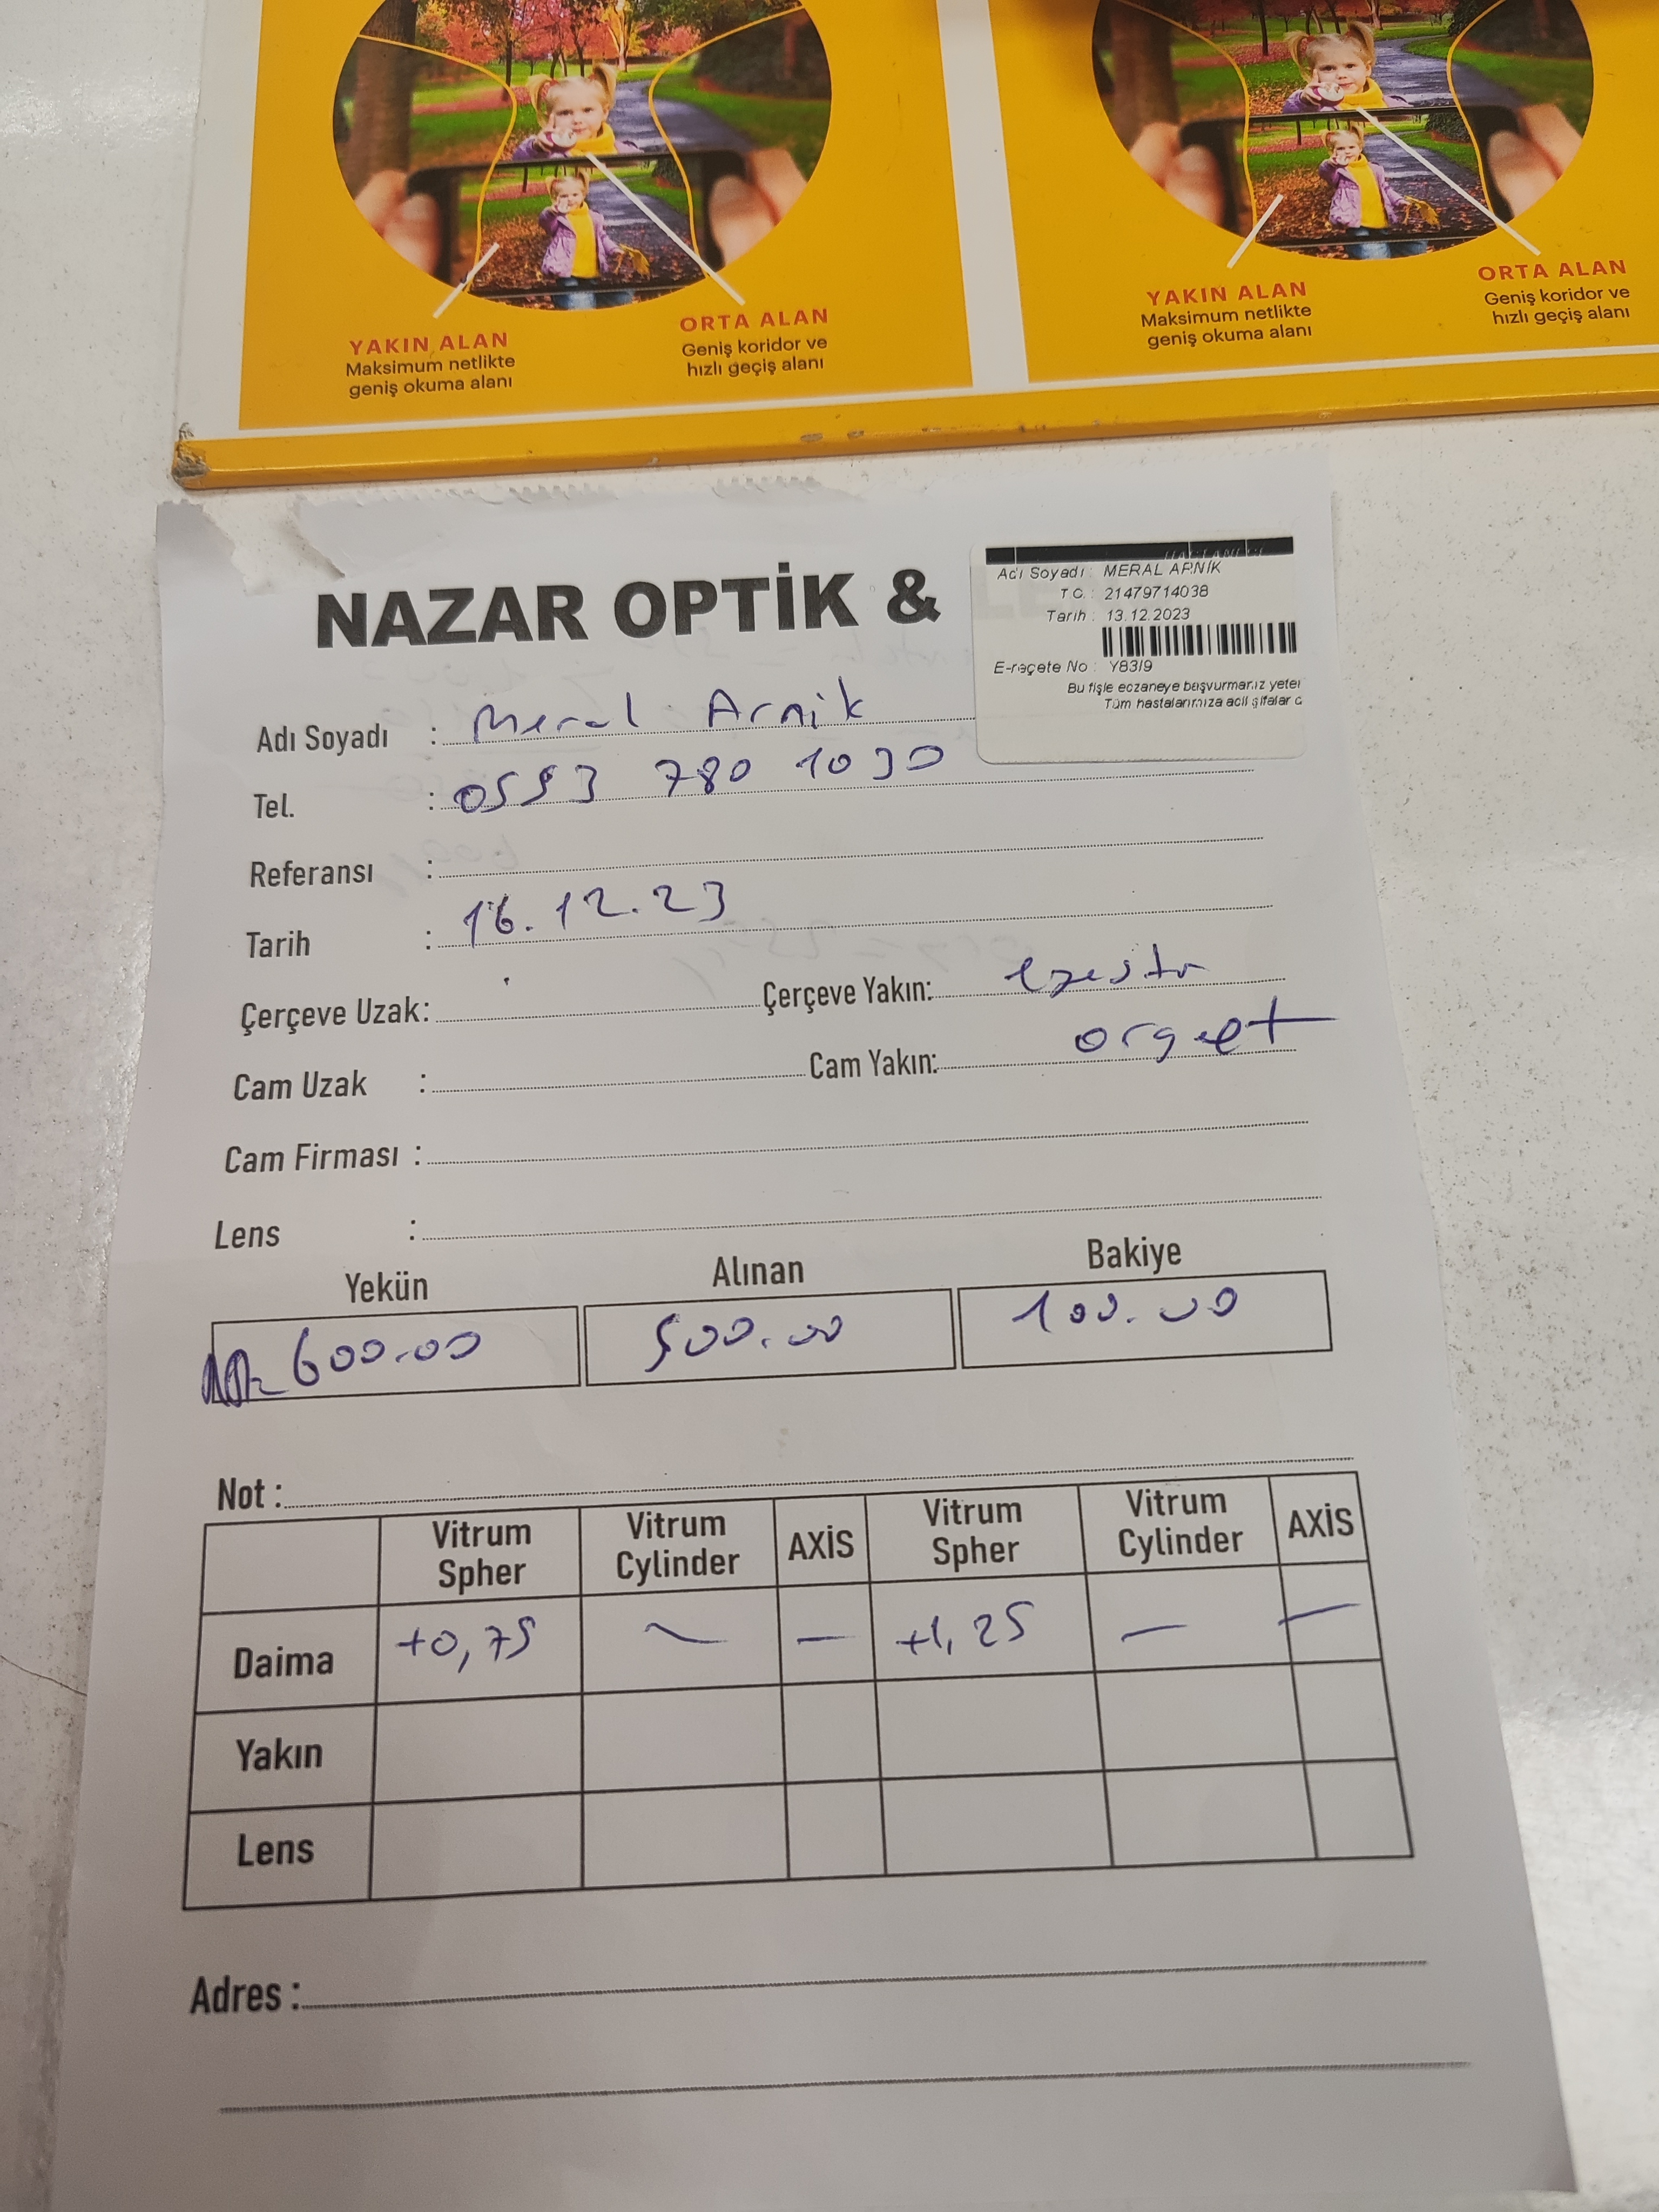 YAKIN ALAN
Maksimum netlikte
geniş okuma alanı
ORTA ALAN
Geniş koridor ve
hızlı geçiş alanı
YAKIN ALAN
Maksimum netlikte
geniş okuma alanı
ORTA ALAN
Geniş koridor ve
hızlı geçiş alanı
NAZAR OPTİK &
Adı Soyadı : MERAL ARNİK
T.C. : 21479714038
Tarih : 13.12.2023
E-reçete No : Y83I9
Bu fişle eczaneye başvurmanız yeter
Tüm hastalarımıza acil şifalar d
Adı Soyadı : Meral Arnik
Tel. : 0553 780 1030
Referansı :
Tarih : 16.12.23
Çerçeve Uzak: Çerçeve Yakın:
Cam Uzak : Cam Yakın:
Cam Firması :
Lens :
Yekün Alınan Bakiye
600.00 500.00 100.00
Not :
Vitrum Spher Vitrum Cylinder AXİS Vitrum Spher Vitrum Cylinder AXİS
Daima +0,75 — — +1,25 — —
Yakın
Lens
Adres :